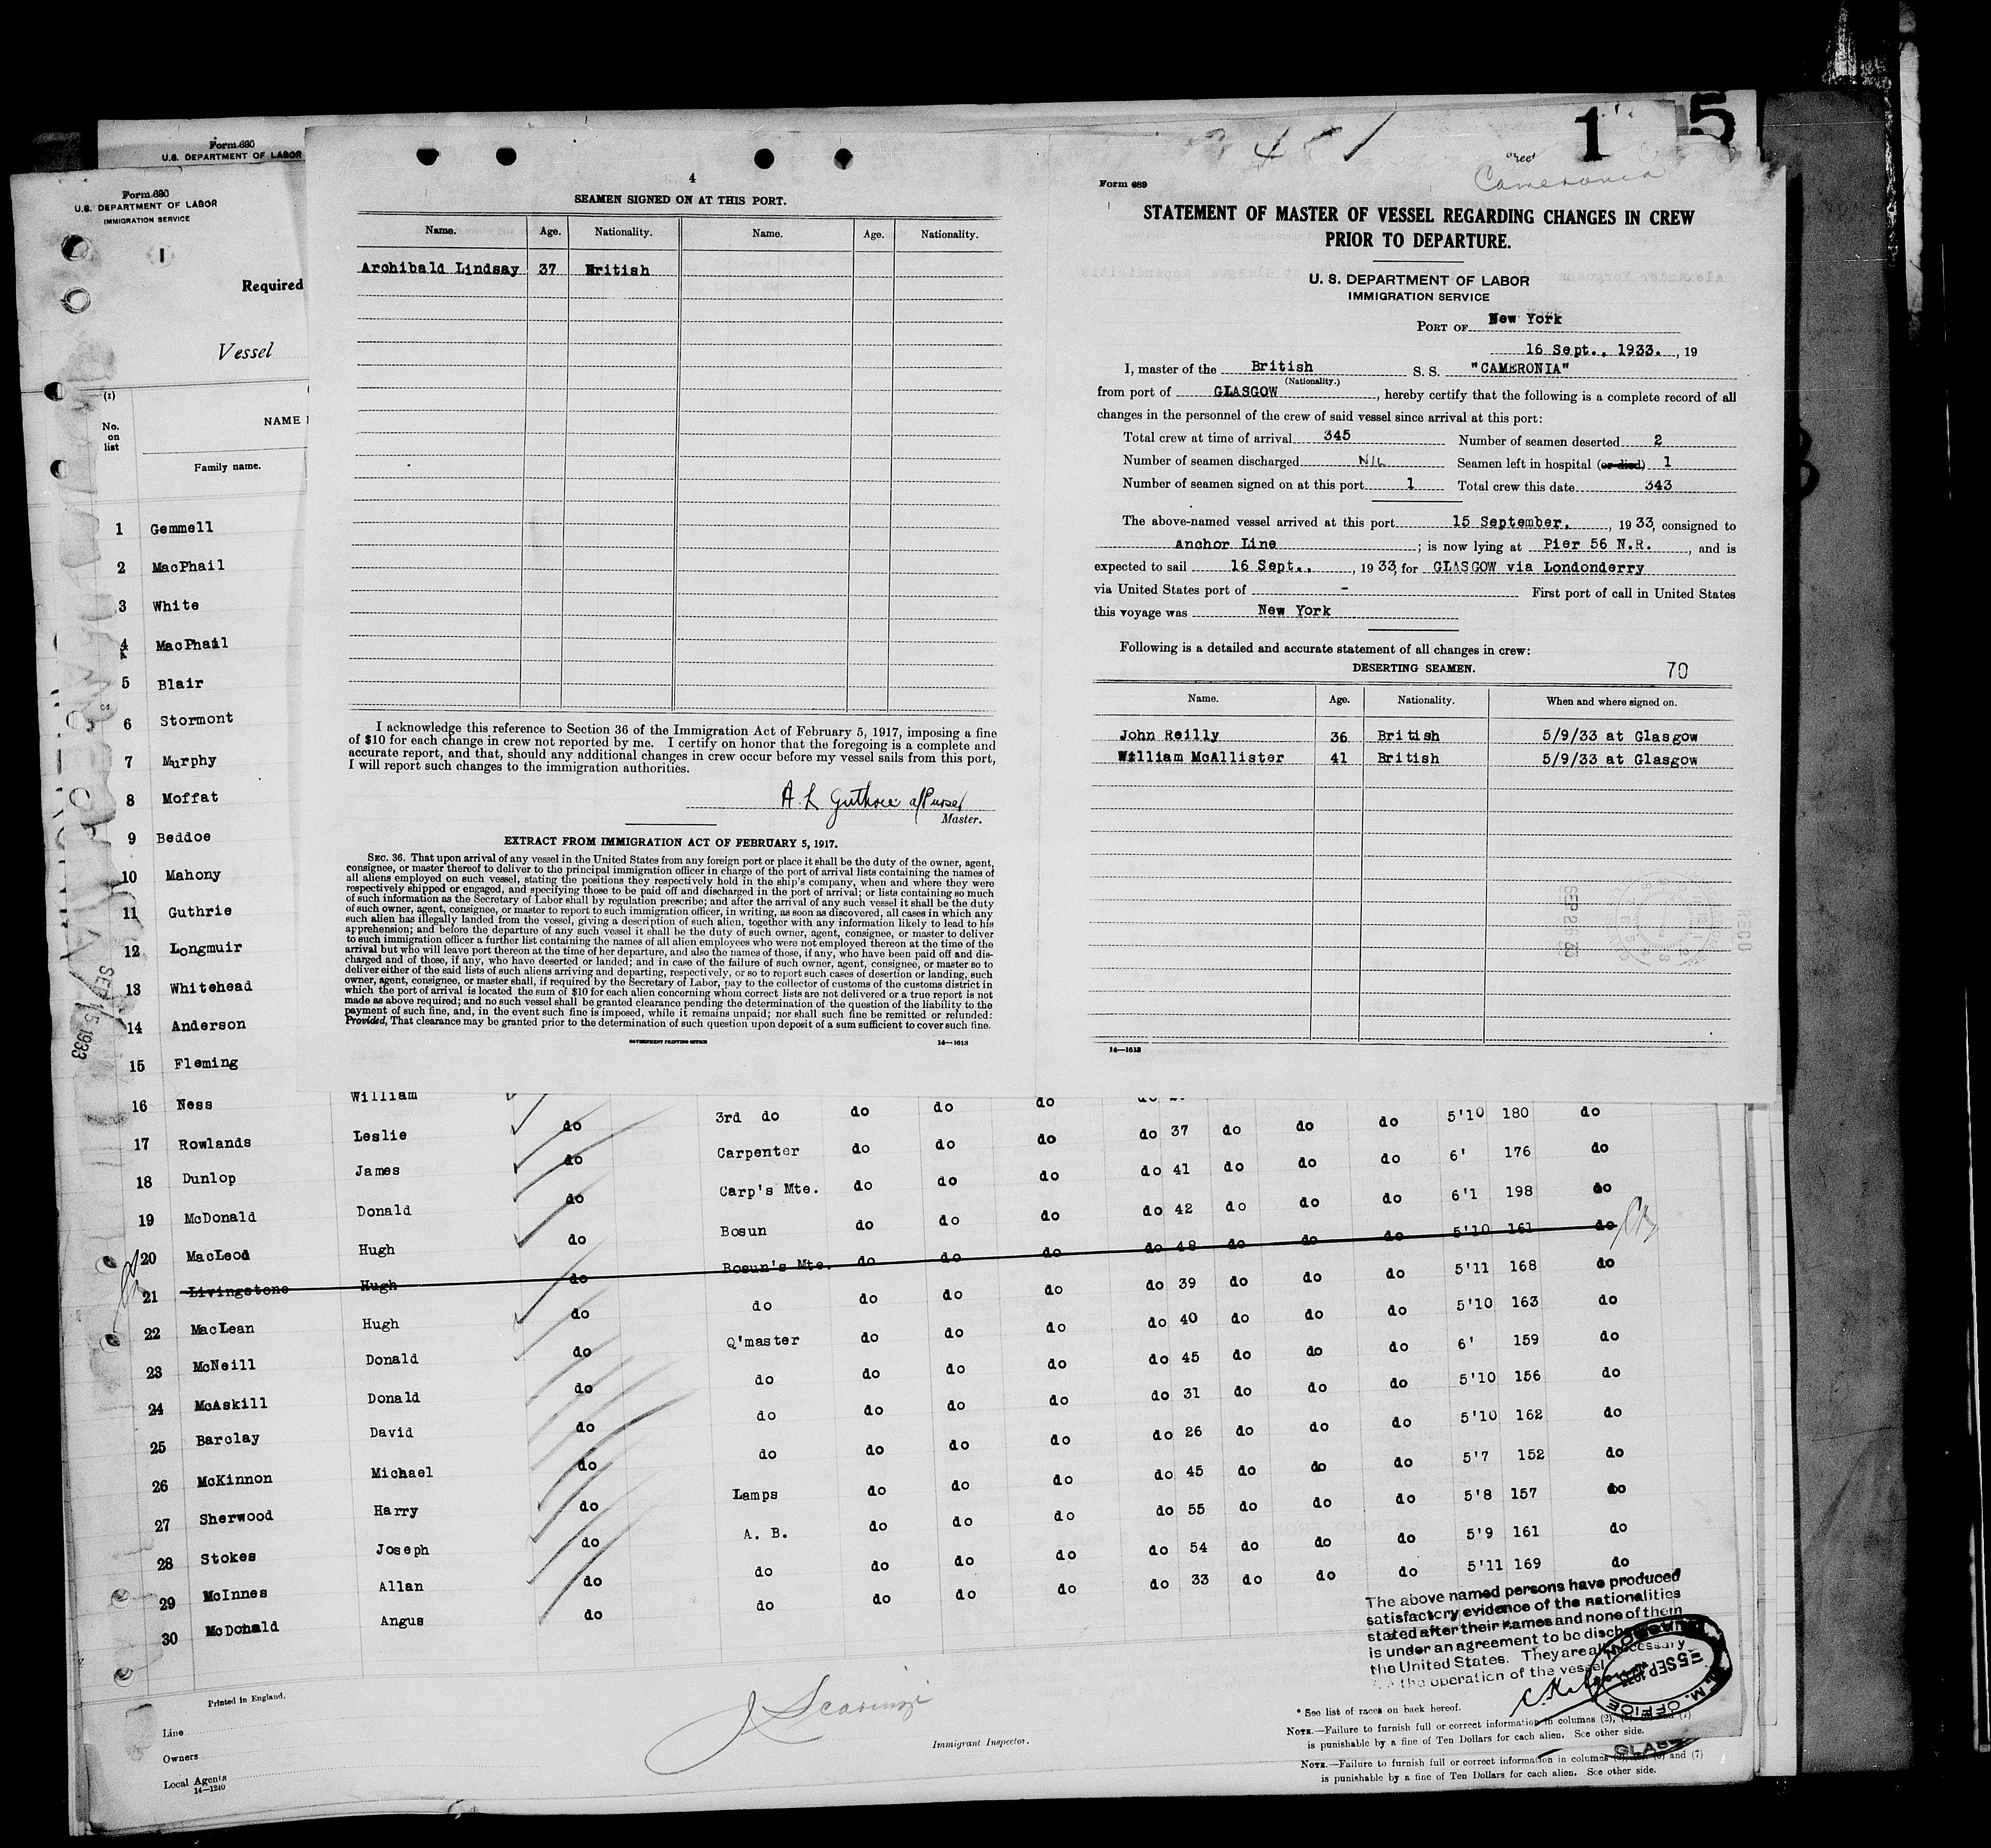 Form 680
U.S. DEPARTMENT OF LABOR
Form 680
U.S. DEPARTMENT OF LABOR
IMMIGRATION SERVICE
1
Required
Vessel
(1)
No. on list
NAME
Family name.
1 Gemmell
2 MacPhail
3 White
4 MacPhail
5 Blair
6 Stormont
7 Murphy
8 Moffat
9 Beddoe
10 Mahony
11 Guthrie
12 Longmuir
13 Whitehead
14 Anderson
15 Fleming
SEP 15 1933
4
SEAMEN SIGNED ON AT THIS PORT.
Name. Age. Nationality. Name. Age. Nationality.
Archibald Lindsay 37 British
I acknowledge this reference to Section 36 of the Immigration Act of February 5, 1917, imposing a fine
of $10 for each change in crew not reported by me. I certify on honor that the foregoing is a complete and
accurate report, and that, should any additional changes in crew occur before my vessel sails from this port,
I will report such changes to the immigration authorities.
A. L Guthrie a/Purser
Master.
EXTRACT FROM IMMIGRATION ACT OF FEBRUARY 5, 1917.
SEC. 36. That upon arrival of any vessel in the United States from any foreign port or place it shall be the duty of the owner, agent,
consignee, or master thereof to deliver to the principal immigration officer in charge of the port of arrival lists containing the names of
all aliens employed on such vessel, stating the positions they respectively hold in the ship's company, when and where they were
respectively shipped or engaged, and specifying those to be paid off and discharged in the port of arrival; or lists containing so much
of such information as the Secretary of Labor shall by regulation prescribe; and after the arrival of any such vessel it shall be the duty
of such owner, agent, consignee, or master to report to such immigration officer, in writing, as soon as discovered, all cases in which any
such alien has illegally landed from the vessel, giving a description of such alien, together with any information likely to lead to his
apprehension; and before the departure of any such vessel it shall be the duty of such owner, agent, consignee, or master to deliver
to such immigration officer a further list containing the names of all alien employees who were not employed thereon at the time of the
arrival but who will leave port thereon at the time of her departure, and also the names of those, if any, who have been paid off and dis-
charged and of those, if any, who have deserted or landed; and in case of the failure of such owner, agent, consignee, or master so to
deliver either of the said lists of such aliens arriving and departing, respectively, or so to report such cases of desertion or landing, such
owner, agent, consignee, or master shall, if required by the Secretary of Labor, pay to the collector of customs of the customs district in
which the port of arrival is located the sum of $10 for each alien concerning whom correct lists are not delivered or a true report is not
made as above required; and no such vessel shall be granted clearance pending the determination of the question of the liability to the
payment of such fine, and, in the event such fine is imposed, while it remains unpaid; nor shall such fine be remitted or refunded:
Provided, That clearance may be granted prior to the determination of such question upon deposit of a sum sufficient to cover such fine.
GOVERNMENT PRINTING OFFICE 14—1613
1 5
Cameronia
Form 689
STATEMENT OF MASTER OF VESSEL REGARDING CHANGES IN CREW
PRIOR TO DEPARTURE.
U. S. DEPARTMENT OF LABOR
IMMIGRATION SERVICE
PORT OF New York
16 Sept., 1933. , 19
I, master of the British S. S. "CAMERONIA"
(Nationality.)
from port of GLASGOW , hereby certify that the following is a complete record of all
changes in the personnel of the crew of said vessel since arrival at this port:
Total crew at time of arrival 345 Number of seamen deserted 2
Number of seamen discharged NIL Seamen left in hospital (or died) 1
Number of seamen signed on at this port 1 Total crew this date 343
The above-named vessel arrived at this port 15 September. , 1933, consigned to
Anchor Line ; is now lying at Pier 56 N.R. , and is
expected to sail 16 Sept., , 1933, for GLASGOW via Londonderry
via United States port of - First port of call in United States
this voyage was New York
Following is a detailed and accurate statement of all changes in crew:
DESERTING SEAMEN. 70
Name. Age. Nationality. When and where signed on.
John Reilly 36 British 5/9/33 at Glasgow
William McAllister 41 British 5/9/33 at Glasgow
REC'D
14—1613
16 Ness William 3rd do do do do do
17 Rowlands Leslie do Carpenter do do do do 37 do do do 5'10 180 do
18 Dunlop James do Carp's Mte. do do do do 41 do do do 6' 176 do
19 McDonald Donald do Bosun do do do do 42 do do do 6'1 198 do
20 MacLeod Hugh do Bosun's Mte. do do do do 48 do do do 5'10 161 do
21 Livingstone Hugh do do do do do do 39 do do do 5'11 168 do
22 MacLean Hugh do Q'master do do do do 40 do do do 5'10 163 do
23 McNeill Donald do do do do do do 45 do do do 6' 159 do
24 McAskill Donald do do do do do do 31 do do do 5'10 156 do
25 Barclay David do do do do do do 26 do do do 5'10 162 do
26 McKinnon Michael do Lamps do do do do 45 do do do 5'7 152 do
27 Sherwood Harry do A. B. do do do do 55 do do do 5'8 157 do
28 Stokes Joseph do do do do do do 54 do do do 5'9 161 do
29 McInnes Allan do do do do do do 33 do do do 5'11 169 do
30 McDonald Angus do
The above named persons have produced
satisfactory evidence of the nationalities
stated after their names and none of them
is under an agreement to be discharged in
the United States. They are all necessary
for the operation of the vessel
5 SEP 1933
M. OFFICE
GLASGOW
Printed in England.
Line
Owners
Local Agents
14—1240
J Scarinzi
Immigrant Inspector.
* See list of races on back hereof.
NOTE.—Failure to furnish full or correct information in columns (2), and (7)
is punishable by a fine of Ten Dollars for each alien. See other side.
NOTE.—Failure to furnish full or correct information in columns (6) and (7)
is punishable by a fine of Ten Dollars for each alien. See other side.